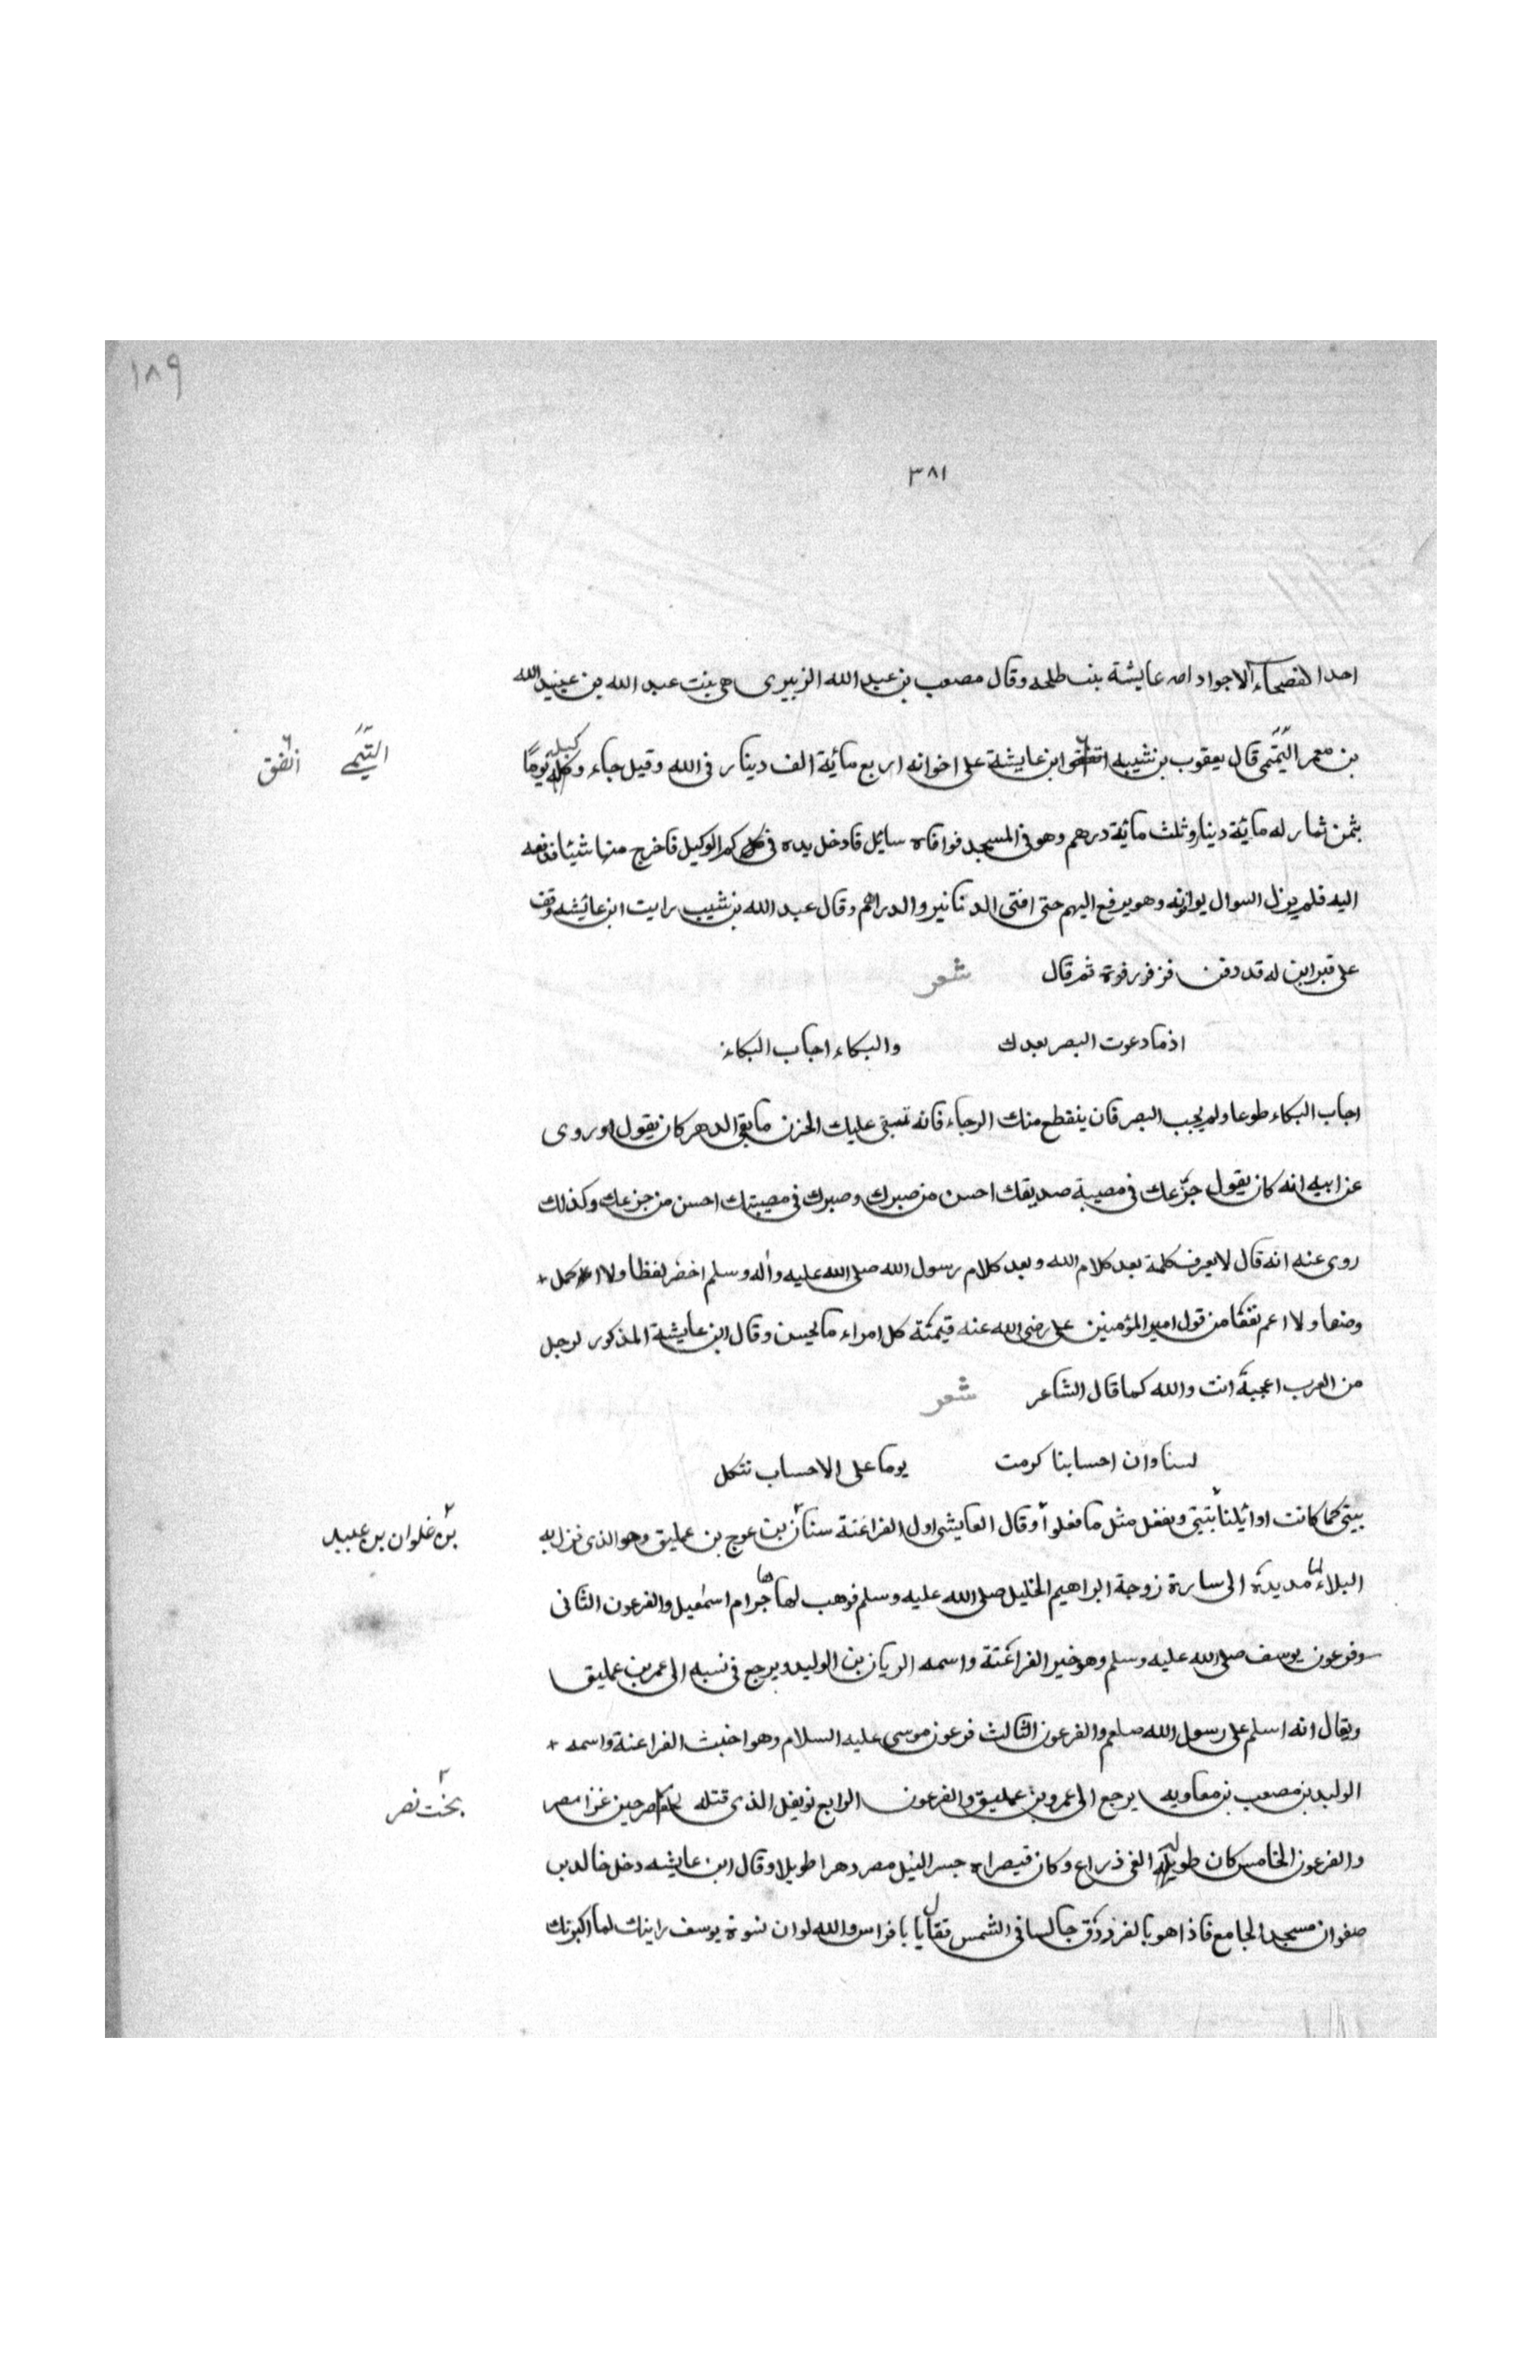 ١٨٩
٣٨١
احد الفصحاء الاجواد امه عايشة بنت طلحه وقال مصعب بن عبد الله الزبيرى هى بنت عبد الله بن عبيد الله
بن معمر التيمى قال يعقوب بن شيبه ابن عايشة على اخوانه اربع مائية الف دينار فى الله وقيل جاء وكيله يوما
التيمے انفق
بثمن ثمار له مائية دينار وثلث مائية درهم وهو فى المسجد فوافاه سايل فادخل يده فى كم الوكيل فاخرج منها شيئا فدفعه
اليه فلم يزل السوال يوازنه وهو يرفع اليهم حتى افنى الدنانير والدراهم وقال عبد الله بن شبيب رايت ابن عائيشه وقف
على قبر ابن له قد دفن فزفر زفرة ثم قال شعر
اذما دعوت البصر بعدك والبكاء اجاب البكاء
اجاب البكاء طوعا ولم يجب البصر فان ينقطع منك الرجاء فانه تبقى عليك الحزن ما بقى الدهر كان يقول اوروى
عن ابيه انه كان يقول جزعك فى مصيبة صديقك احسن من صبرك وصبرك فى مصيبتك احسن من جزعك وكذلك
روى عنه انه قال لا يعرف كلمة بعد كلام الله وبعد كلام رسول الله صلى الله عليه واله وسلم اخضر لفظا ولا اكمل +
وضعا ولا اعم نفقا من قول امير المؤمنين على رضى الله عنه قيمته كل امراء ما يحسن وقال ابن عايشة المذكور لرجل
من العرب اعجبه انت والله كما قال الشاعر شعر
لسنا وان احسابنا كرمت يوما على الاحساب نتكل
بيتى كما كانت اوائيلنا تبتى ونفعل مثل ما فعلوا وقال العايشى اول الفراعنة سنان بن عوج بن عمليق وهو الذى نزل به
بن غلوان بن عبيد
البلاء لما مد يده الى سارة زوجة ابراهيم الخليل صلى الله عليه وسلم فوهب لها هاجر ام اسمعيل والفرعون الثانى
وفرعون يوسف صلى الله عليه وسلم وهو خير الفراعنة واسمه الريان بن الوليد ويرجع فى نسبه الى عمر بن عمليق
ويقال انه اسلم على رسول الله صلعم والفرعون الثالث فرعون موسى عليه السلام وهو اخبث الفراعنة واسمه +
الوليد بن مصعب بن معاويه يرجع الى عمرو بن عمليق والفرعون الرابع نوفل الذى قتله حين غزا مصر
بخت نصر
والفرعون الخامس كان طويله الفى ذراع وكان قيصراه جسر النيل مصر دهرا طويلا وقال ابن عايشه دخل خالد بن
صفوان مسجد الجامع فاذا هو بالفرزدق جالسا فى الشمس فقال يا با فراس والله لو ان نسوة يوسف راينك لما اكبرنك